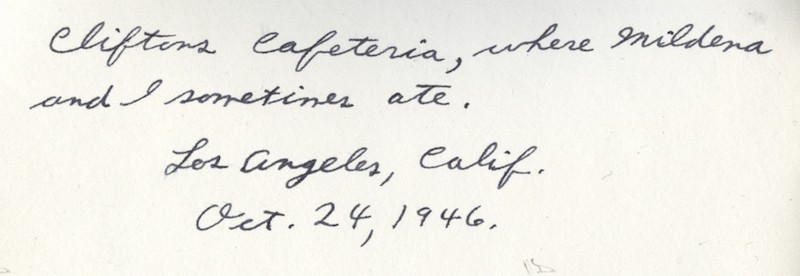 Cliftons Cafeteria, where Mildena
and I sometimes ate.
Los Angeles, Calif.
Oct. 24, 1946.